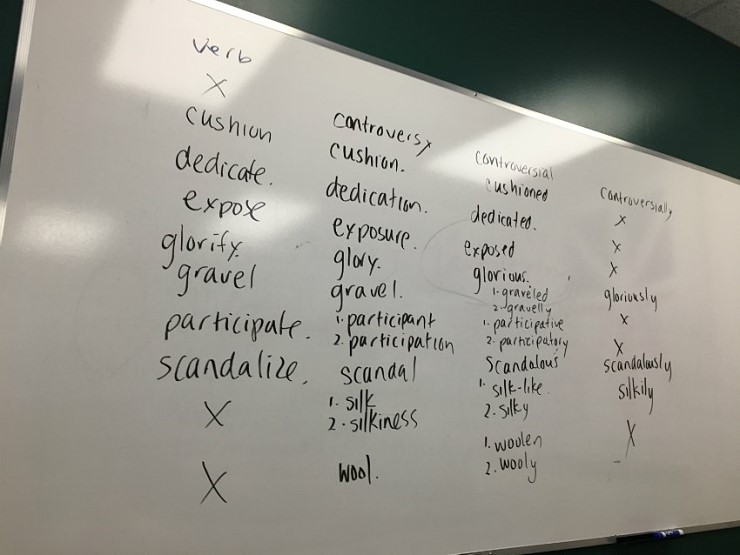 verb
X
cushion
dedicate.
expose
glorify.
gravel
participate.
scandalize.
X
X
controversy
cushion.
dedication.
exposure.
glory.
gravel.
1. participant
2. participation
scandal
1. silk
2. silkiness
wool.
controversial
cushioned
dedicated.
exposed
glorious.
1. graveled
2. gravelly
1. participative
2. participatory
scandalous
1. silk-like.
2. silky
1. woolen
2. wooly
controversially
X
X
X
gloriously
X
X
scandalously
silkily
X